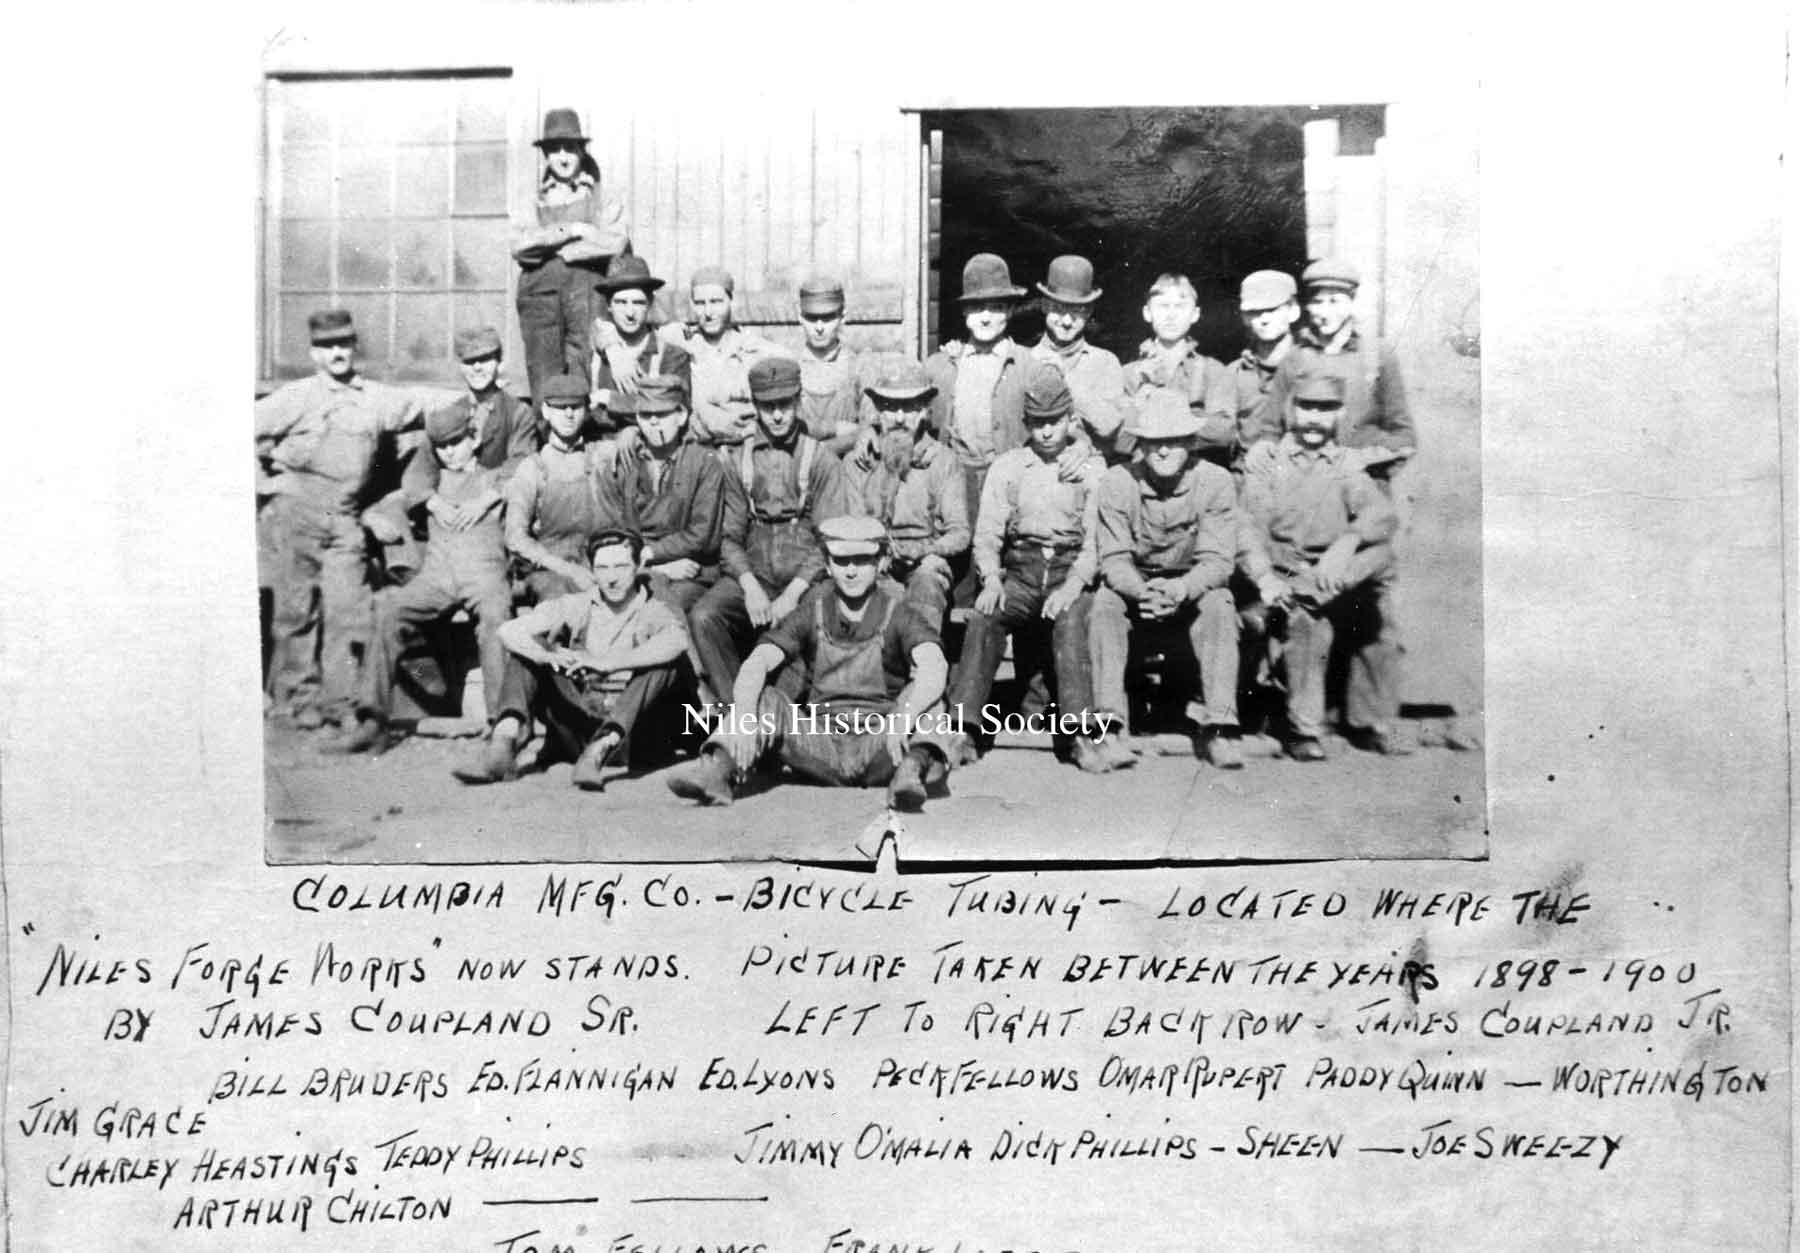 Niles Historical Society
COLUMBIA MFG. CO. - BICYCLE TUBING - LOCATED WHERE THE
"NILES FORGE WORKS" NOW STANDS. PICTURE TAKEN BETWEEN THE YEARS 1898-1900
BY JAMES COUPLAND SR. LEFT TO RIGHT BACK ROW - JAMES COUPLAND JR.
BILL BRUDERS ED. FLANNIGAN ED. LYONS PECK FELLOWS OMAR RUPERT PADDY QUINN — WORTHINGTON
JIM GRACE
CHARLEY HEASTINGS TEDDY PHILLIPS JIMMY O'MALIA DICK PHILLIPS - SHEEN — JOE SWEEZY
ARTHUR CHILTON — —
TOM FELLOWS FRANK